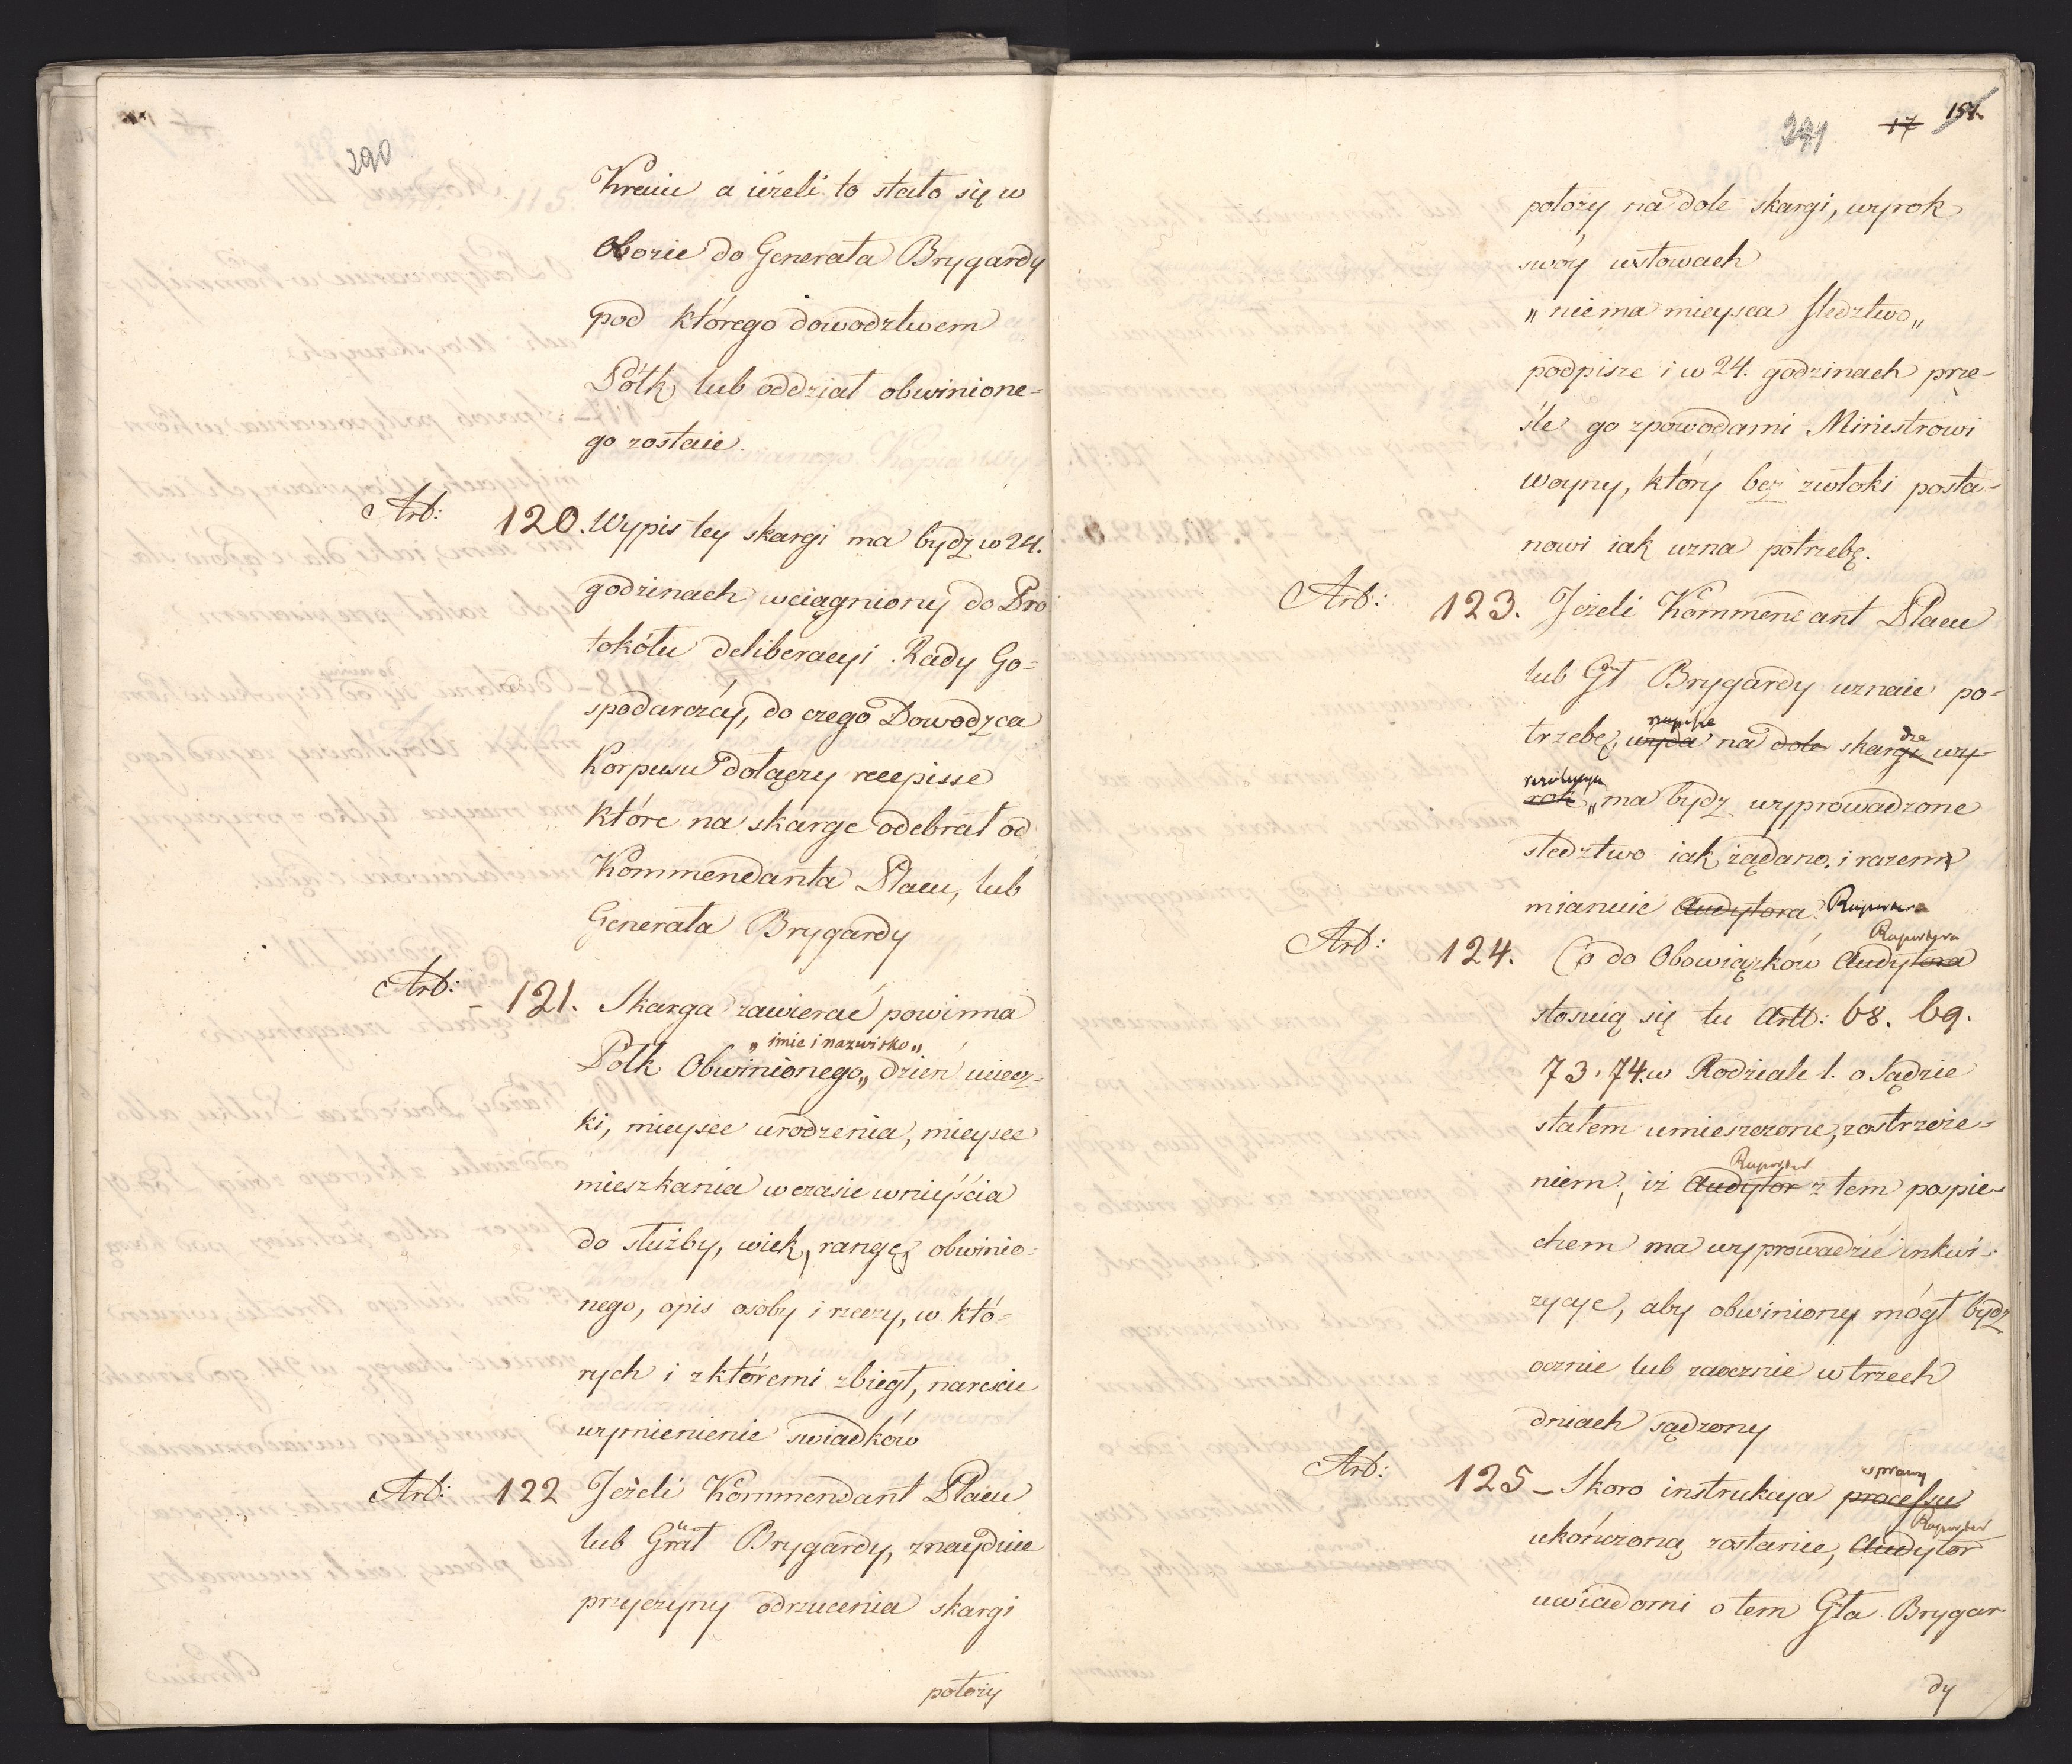 290
Kraiu a ieżeli to stało się w
Obozie do Generała Brygardy
pod którego dowodztwem
Półk, lub oddział obwinione-
go zostaie.
Art: 120. Wypis tey skargi ma bydz w 24.
godzinach wciągniony do Pro
tokółu deliberacyi Rady Go=
spodarczéy, do czego Dowodzca
Korpusu dołączy recepisse
które na skargę odebrał od
Kommendanta Placu, lub
Generała Brygardy
Art: - 121. Skarga zawierać powinna
„ imie i nazwisko „
Połk Obwinionego„ dzień uciecz-
ki, mieysce urodzenia, mieysce
mieszkania w czasie wniyścia
do służby, wiek, rangę, obwinio=
nego, opis osoby i rzeczy, w któ=
rych i z któremi zbiegł, nareście
wymienienie swiadków
Art: 122 Jeżeli Kommendant Placu
lub Grał Brygardy, znaydzie
przyczyny odrzucenia skargi
położy
291 17 151.
położy na dole skargi, wyrok
swóy w słowach
„ niema mieysca sledztwo „
podpisze i w 24. godzinach prze-
śle go z powodami Ministrowi
woyny, który bez zwłoki posta-
nowi iak uzna potrzebę.
Art: 123. Jeżeli Kommendant Placu
lub Gł Brygardy uznaie po-
napisze dze
trzebę, wyda na dole skargi wy-
rezolucyą
rok „ma bydz wyprowadzone
sledztwo iak żądano. i razem
mianuie Audytora Raportera
Raportera
Art: 124. Co do Obowiązków Audytora
stosuią się tu Artt: 68. 69.
73. 74. w Rodziale 1. o Sądzie
stałem umieszczone, zostrzeże-
Raporter
niem, iż Audytor z tem pospie-
chem ma wyprowadzić inkwi-
zycye, aby obwiniony mógł bydz
ocznie lub zaocznie w trzech
dniach sądzony
sprawy
Art: 125 - Skoro instrukcya processu
Raporter
ukończoną zostanie, Audytor
uwiadomi o tem Gła Brygar
dy